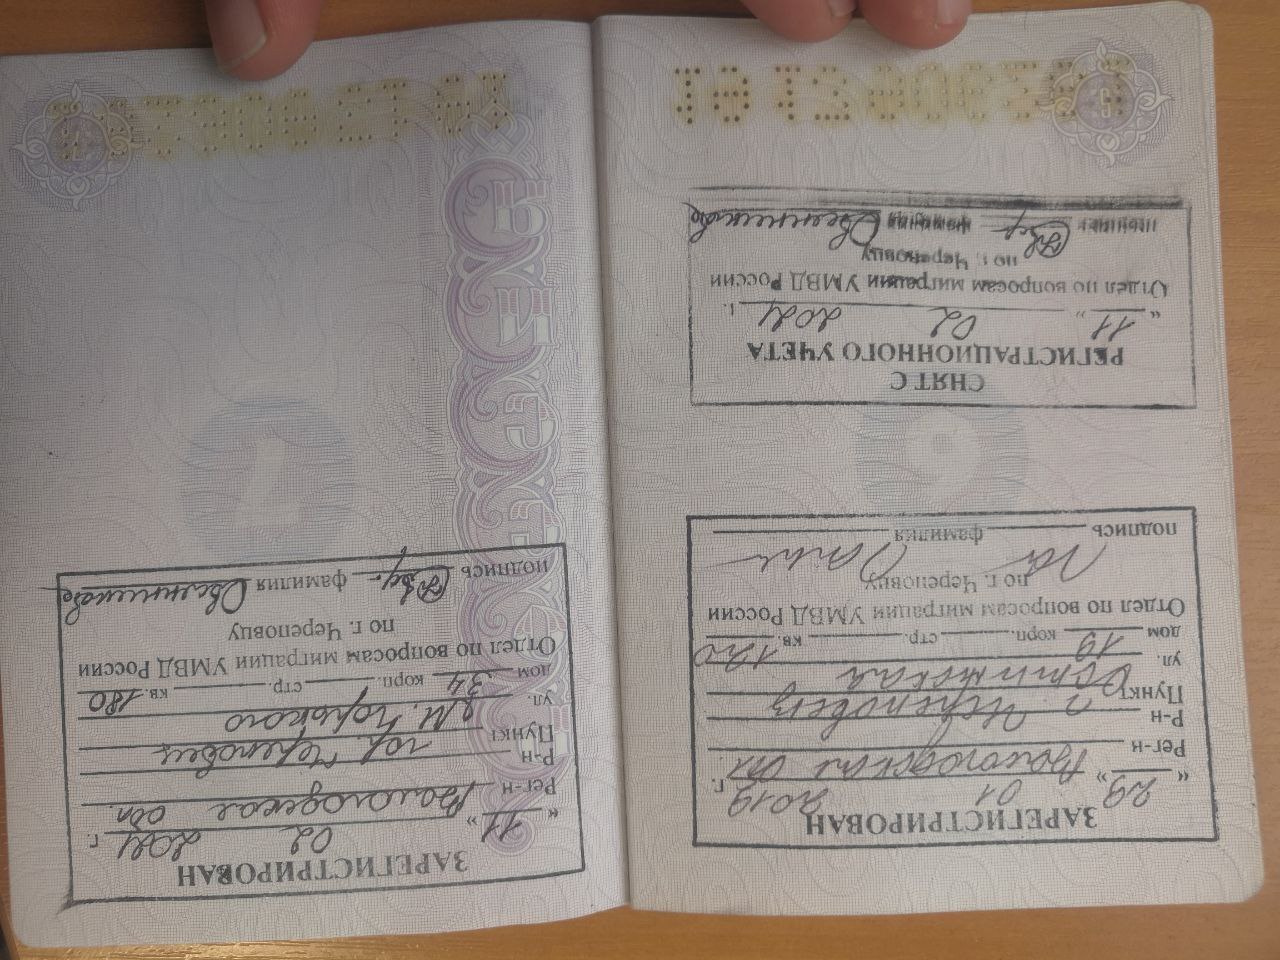 ЗАРЕГИСТРИРОВАН
"29" 01 2019 г.
Рег-н Вологодская обл
Р-н
Пункт г. Череповец
ул.
дом 19 корп. стр. кв. 120
Отдел по вопросам миграции УМВД России
по г. Череповцу
подпись фамилия
6
СНЯТ С
РЕГИСТРАЦИОННОГО УЧЕТА
"11" 02 2021 г.
Отдел по вопросам миграции УМВД России
по г. Череповцу
подпись фамилия
ЗАРЕГИСТРИРОВАН
"11" 02 2021 г.
Рег-н Вологодская обл.
Р-н
Пункт гор. Череповец
ул. М. Горького
дом 34 корп. стр. кв. 180
Отдел по вопросам миграции УМВД России
по г. Череповцу
подпись фамилия
7